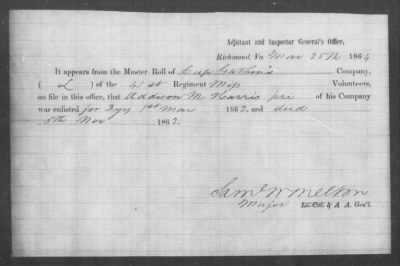 Adjutant and Inspector General's Office,
Richmond, Va. Mar 25th 1864
It appears from the Muster Roll of Cap Company,
( L ) of the 41st Regiment Miss Volunteers,
on file in this office, that Addison M Harris pri of his Company
was enlisted for 3 yrs 1st Mar 1862, and died
5th Nov 1862.
Saml W Melton
Major Lt. Col. & A. A. Gen'l.